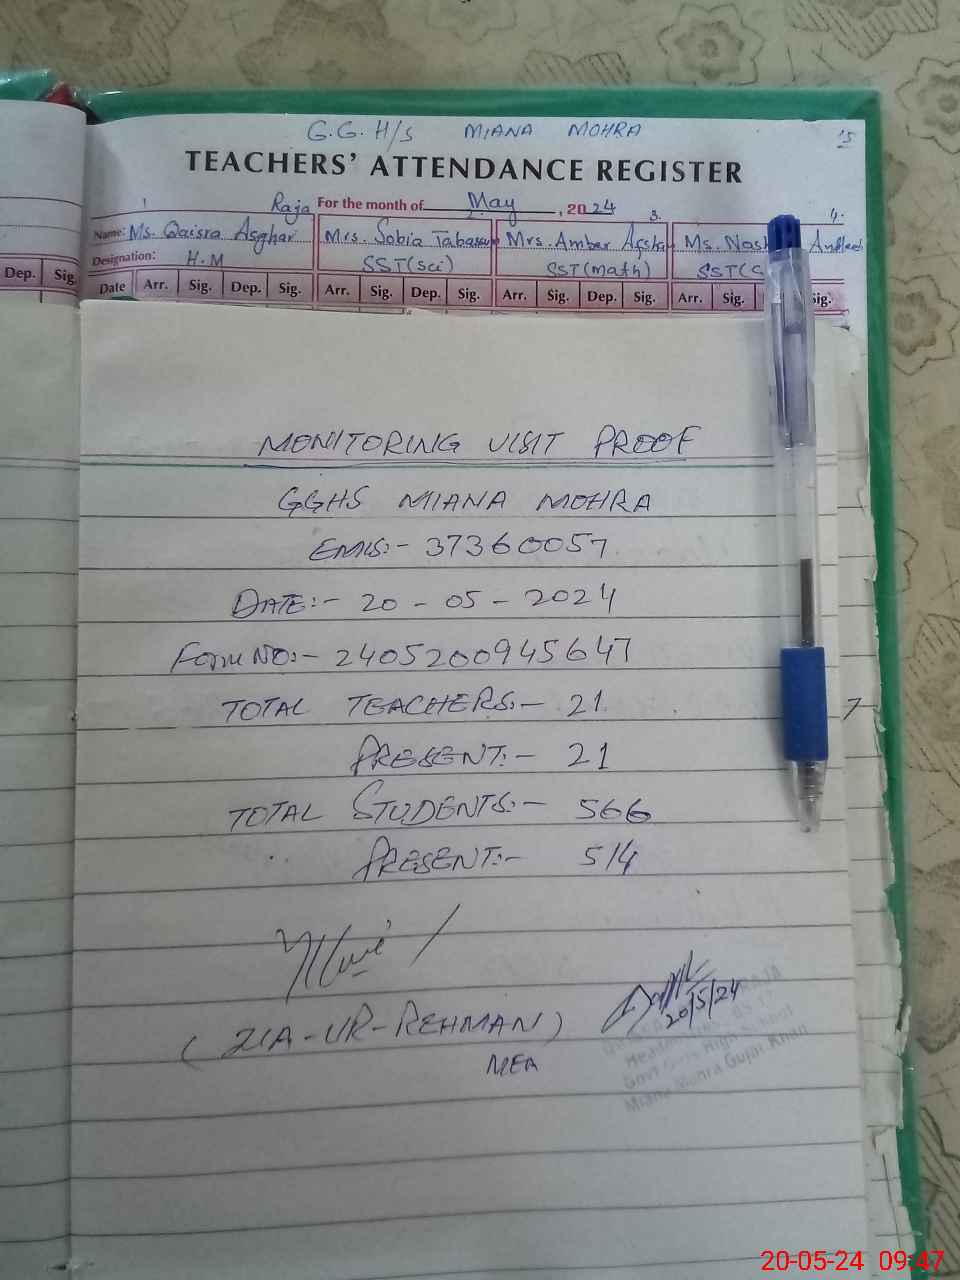 G.G. H/S MIANA MOHRA 15
TEACHERS' ATTENDANCE REGISTER
For the month of May, 2024
1 2. 3. 4.
Name: Ms. Qaisra Asghar Raja Mrs. Sobia Tabassum Mrs. Amber Afshan Ms.
Designation: H.M SST(sci) SST(math)
Dep. Sig. Date Arr. Sig. Dep. Sig. Arr. Sig. Dep. Sig. Arr. Sig. Dep. Sig. Arr. Sig. Sig.
MONITORING VISIT PROOF
GGHS MIANA MOHRA
EMIS:- 37360057
DATE:- 20-05-2024
Form NO:- 2405200945647
TOTAL TEACHERS:- 21
7
PRESENT:- 21
TOTAL STUDENTS:- 566
PRESENT:- 514
20/5/24
(ZIA-UR-REHMAN)
MEA
Govt Girls High School
Miana Mohra Gujar Khan
20-05-24 09:47